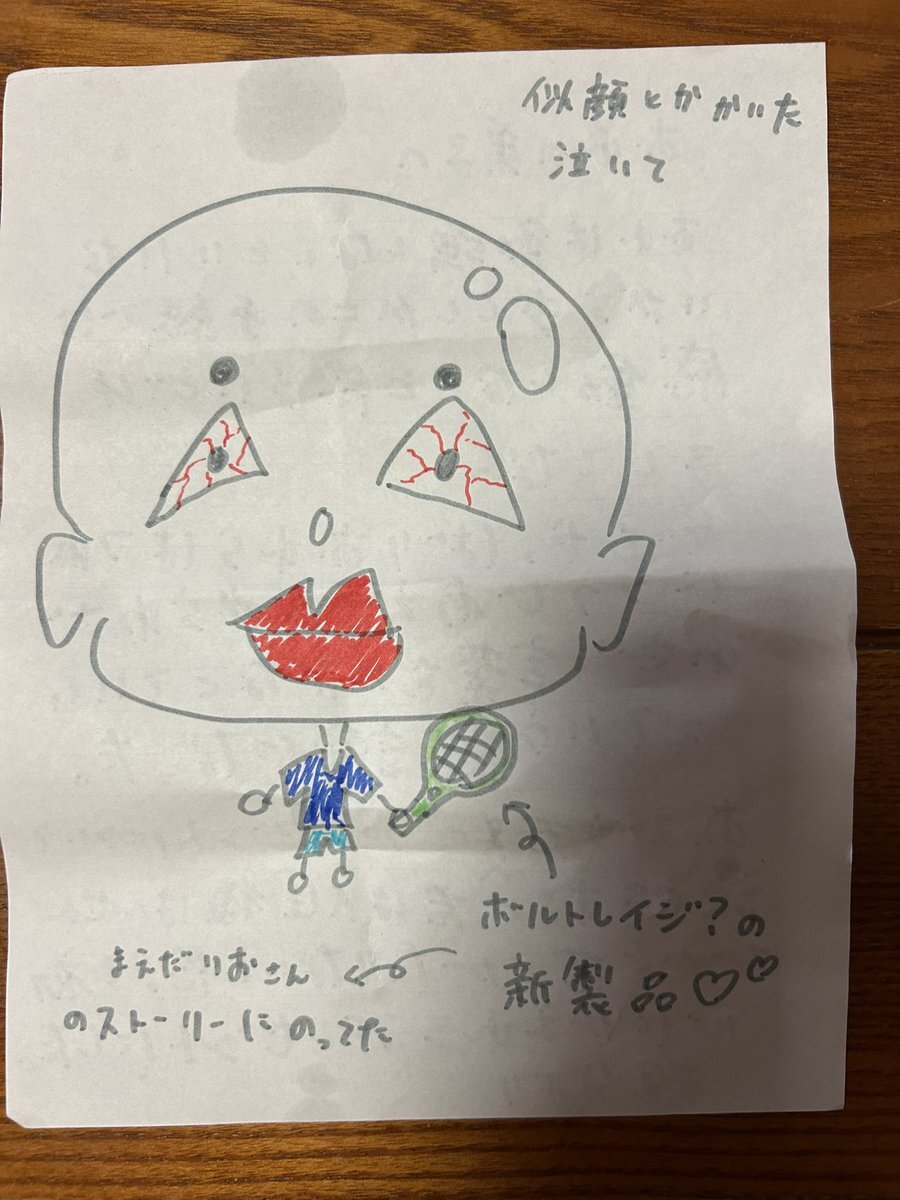 似顔とかかいた
泣いて
ボルトレイジ?の
新製品♡♡
まえだりおさん
のストーリーにのってた